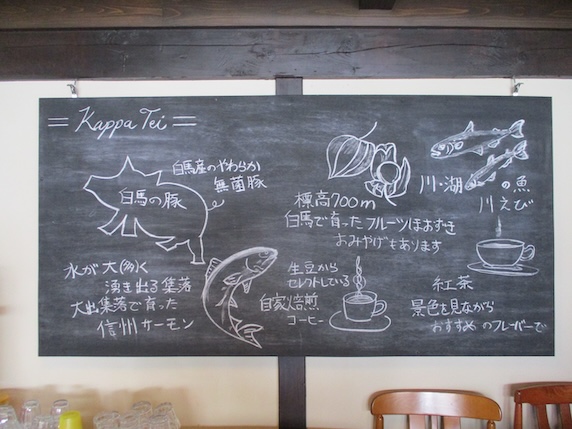 = Kappa Tei =
白馬産のやわらか
無菌豚
白馬の豚
水が大(多)く
湧き出る集落
大出集落で育った
信州サーモン
標高700m
白馬で育ったフルーツほおずき
おみやげもあります
生豆から
セレクトしている
自家焙煎
コーヒー
川・湖の魚
川えび
紅茶
景色を見ながら
おすすめのフレーバーで